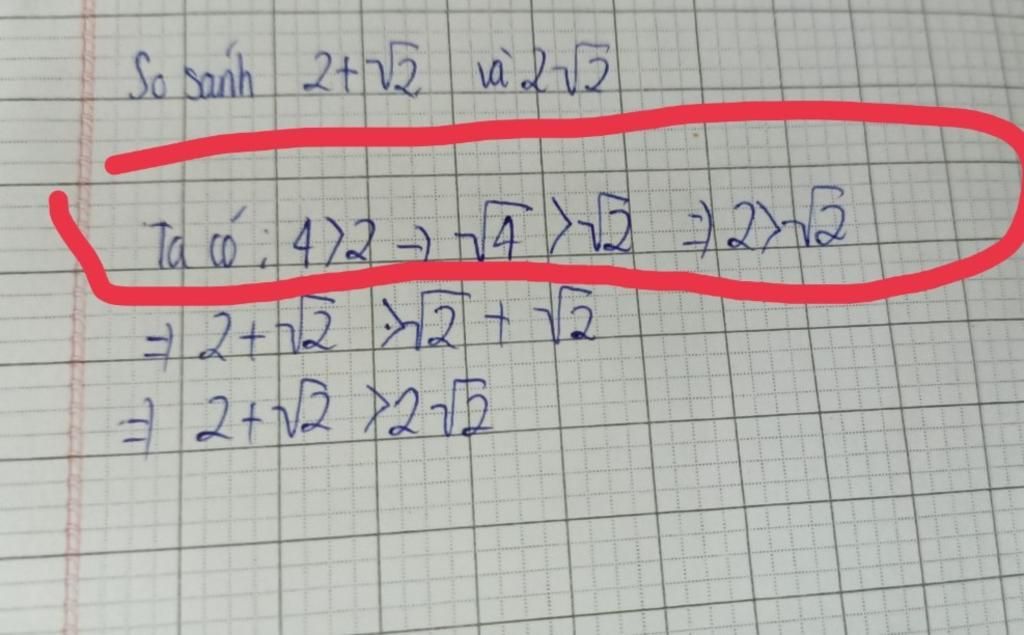 So sánh 2+√2 và 2√2
Ta có: 4>2 → √4 >√2 ⇒ 2>√2
⇒ 2+√2 >√2 + √2
⇒ 2+√2 >2√2